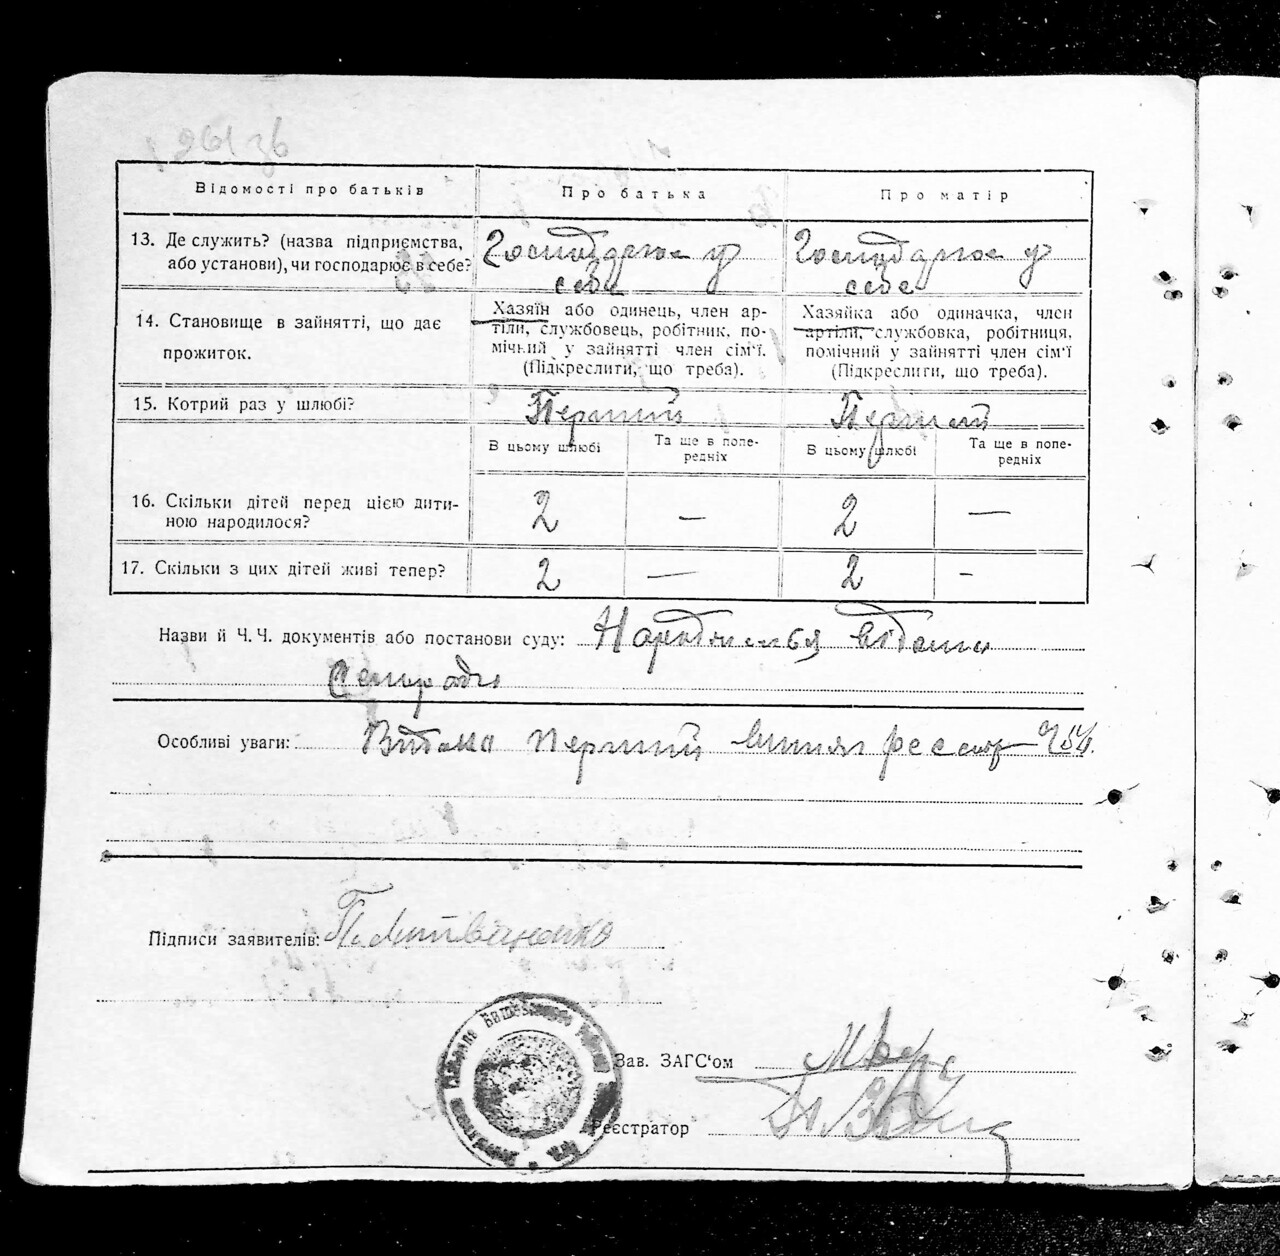 261 зв
Відомості про батьків
Про батька
Про матір
13. Де служить? (назва підприємства, або установи), чи господарює в себе?
Господарює у
себе
Господарює у
себе
14. Становище в зайнятті, що дає
прожиток.
Хазяїн або одинець, член ар-
тіли, службовець, робітник, по-
мічний у зайнятті член сім'ї.
(Підкреслити, що треба).
Хазяйка або одиначка, член
артіли, службовка, робітниця,
помічний у зайнятті член сім'ї
(Підкреслиги, що треба).
15. Котрий раз у шлюбі?
Перший
Перший
В цьому шлюбі
Та ще в попе-
редніх
В цьому шлюбі
Та ще в попе-
редніх
16. Скільки дітей перед цією дити-
ною народилося?
2
—
2
—
17. Скільки з цих дітей живі тепер?
2
—
2
-
Назви й Ч. Ч. документів або постанови суду:
Сельради
Особливі уваги:
перший
Підписи заявителів: П. Литвиненко
Зав. ЗАГС'ом
Реєстратор